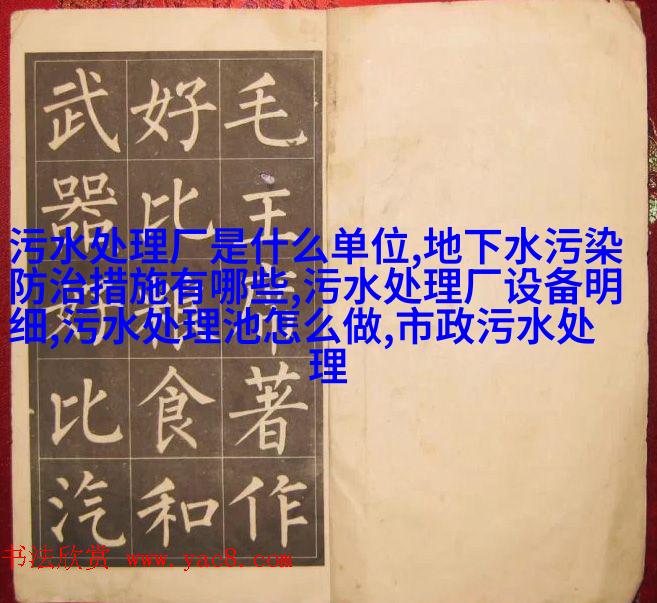 毛主席著作
好比粮食和
武器好比汽
污水处理厂是什么单位,地下水污染
防治措施有哪些,污水处理厂设备明
细,污水处理池怎么做,市政污水处
理
书法欣赏 www.yac8.com